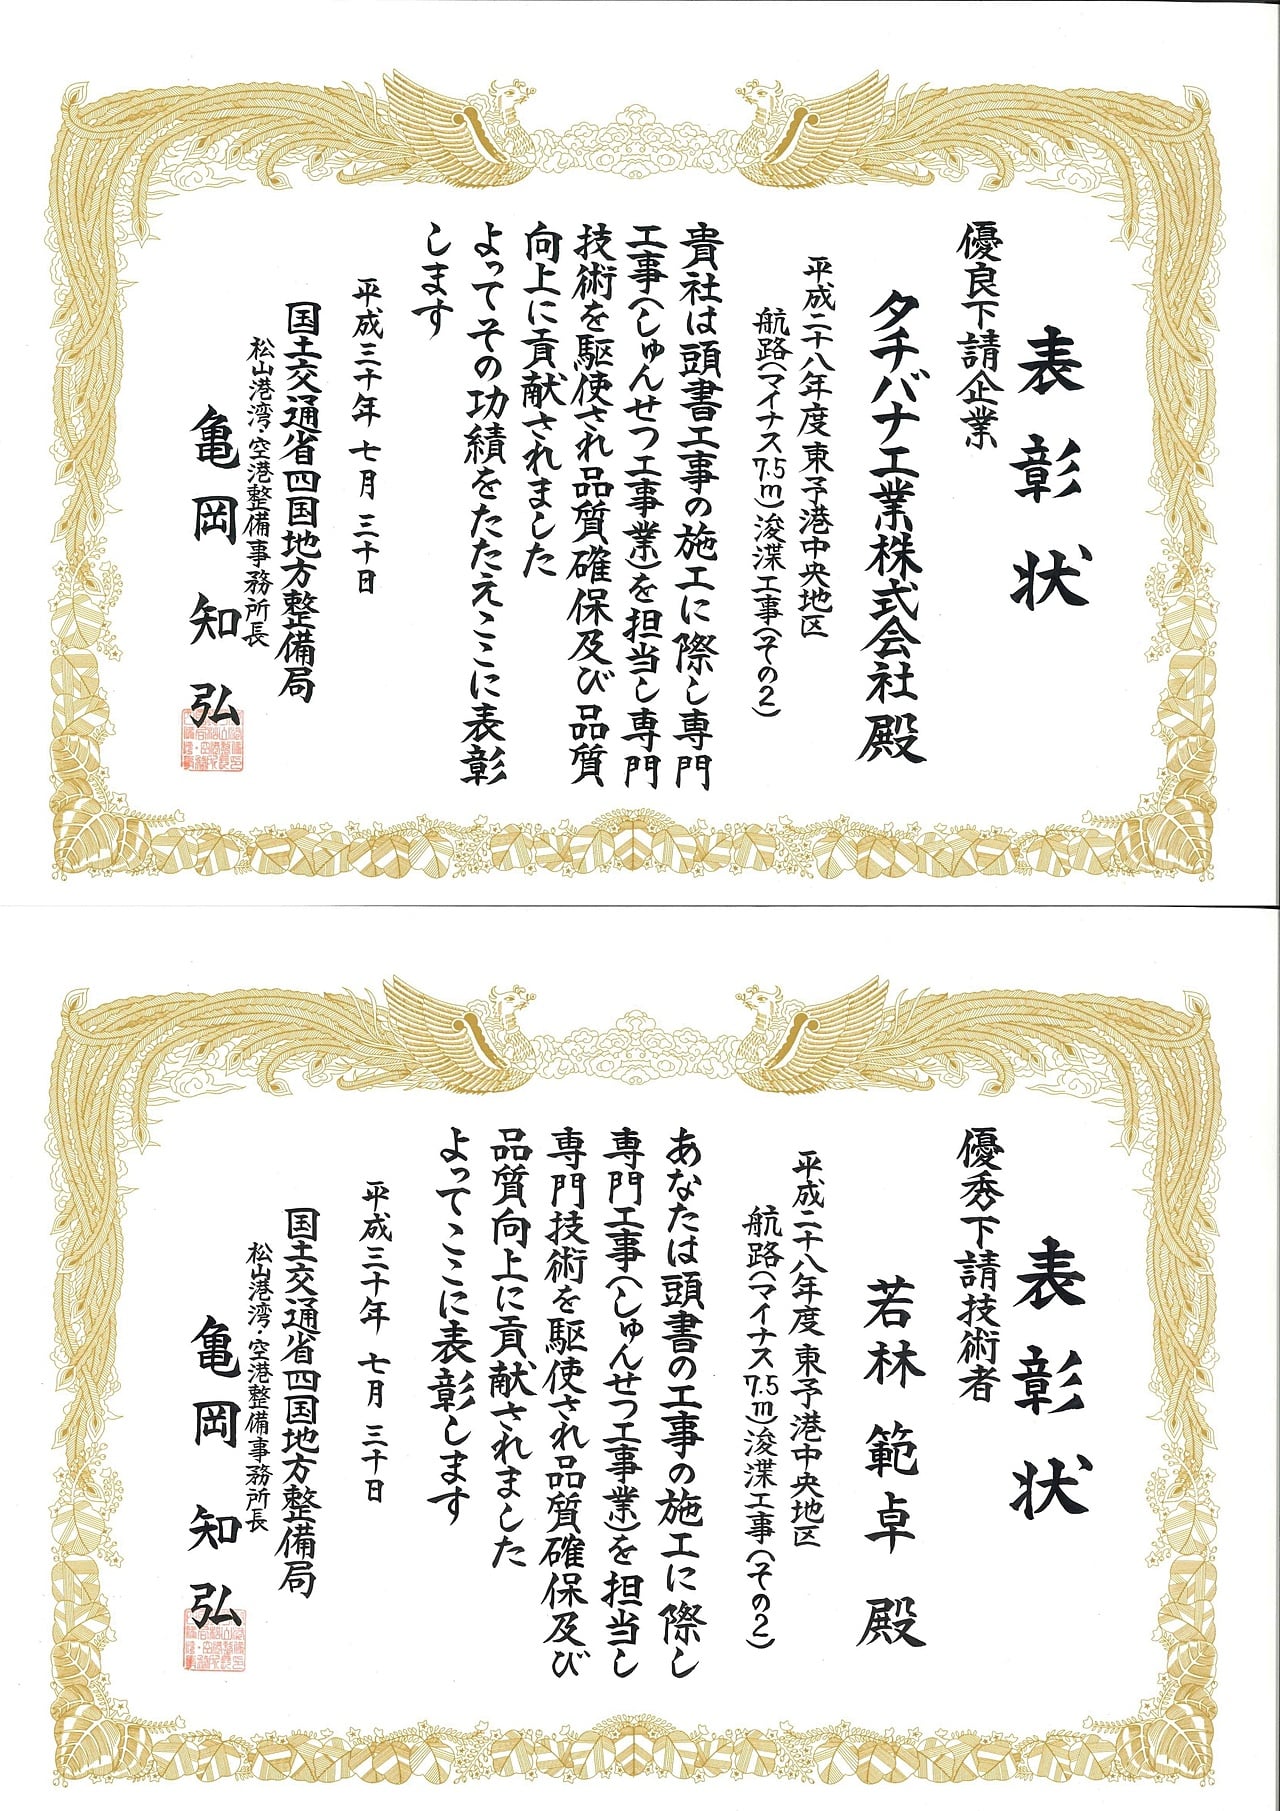 表彰状
優良下請企業
タチバナ工業株式会社殿
平成二十八年度東予港中央地区
航路(マイナス7.5m)浚渫工事(その2)
貴社は頭書工事の施工に際し専門
工事(しゅんせつ工事業)を担当し専門
技術を駆使され品質確保及び品質
向上に貢献されました
よってその功績をたたえここに表彰
します
平成三十年七月三十日
国土交通省四国地方整備局
松山港湾・空港整備事務所長
亀岡知弘
表彰状
優秀下請技術者
若林範卓殿
平成二十八年度東予港中央地区
航路(マイナス7.5m)浚渫工事(その2)
あなたは頭書の工事の施工に際し
専門工事(しゅんせつ工事業)を担当し
専門技術を駆使され品質確保及び
品質向上に貢献されました
よってここに表彰します
平成三十年七月三十日
国土交通省四国地方整備局
松山港湾・空港整備事務所長
亀岡知弘